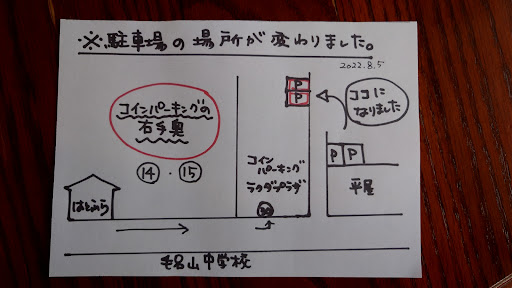 ※駐車場の場所が変わりました。
2022.8.5
P
P
ココに
なりました
コインパーキングの
右手奥
⑭・⑮
P P
平屋
コイン
パーキング
ラクダプラザ
はとむら
毛呂山中学校